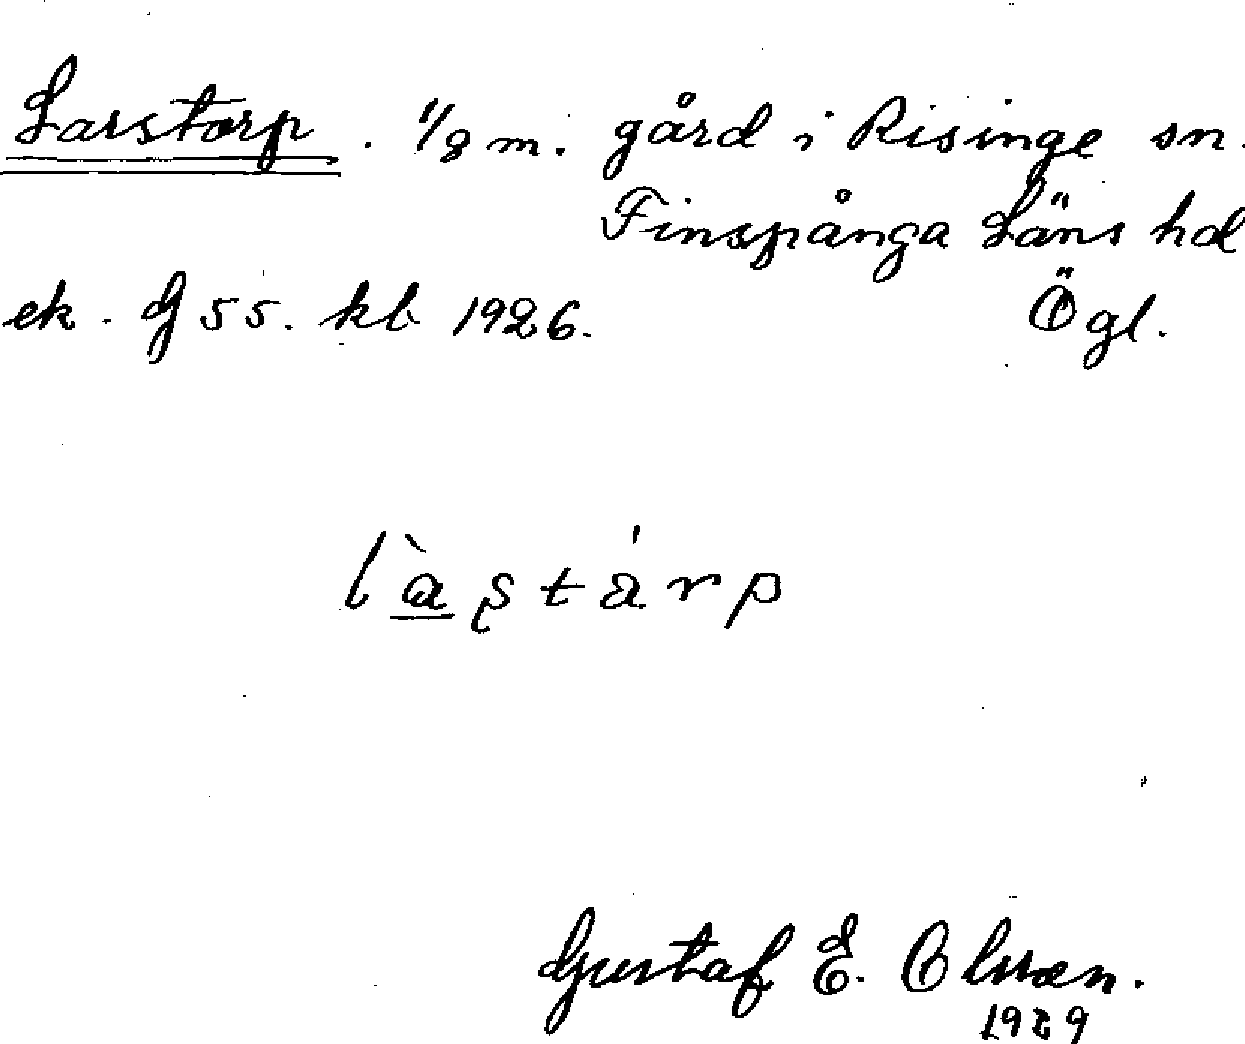 Larstorp. 1/8 m. gård i Risinge sn.
Finspånga Läns hd
ek. G 55. kb 1926. Ögl.
làştårp
Gustaf E. Olsson.
1929